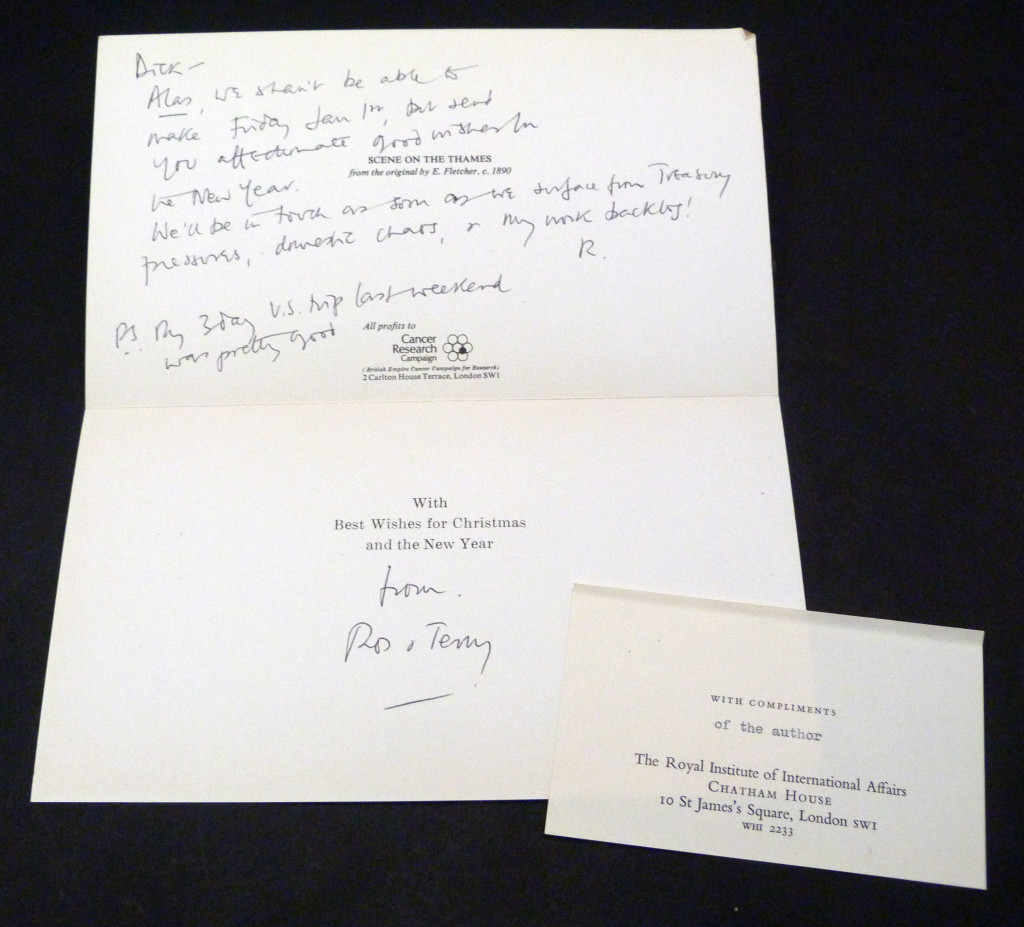 Dick –
Alas, we shan't be able to
make Friday Jan 1st, but send
you affectionate good wishes for
SCENE ON THE THAMES
from the original by E. Fletcher, c. 1890
the New Year.
We'll be in touch as soon as we surface from Treasury
pressures, domestic chaos, or my work backlog!
R.
PS. My 3 day U.S. trip last weekend
was pretty good
All profits to
Cancer
Research
Campaign
(British Empire Cancer Campaign for Research)
2 Carlton House Terrace, London SW1
With
Best Wishes for Christmas
and the New Year
from.
Ros & Terry
WITH COMPLIMENTS
of the author
The Royal Institute of International Affairs
CHATHAM HOUSE
10 St James's Square, London SW1
WHI 2233